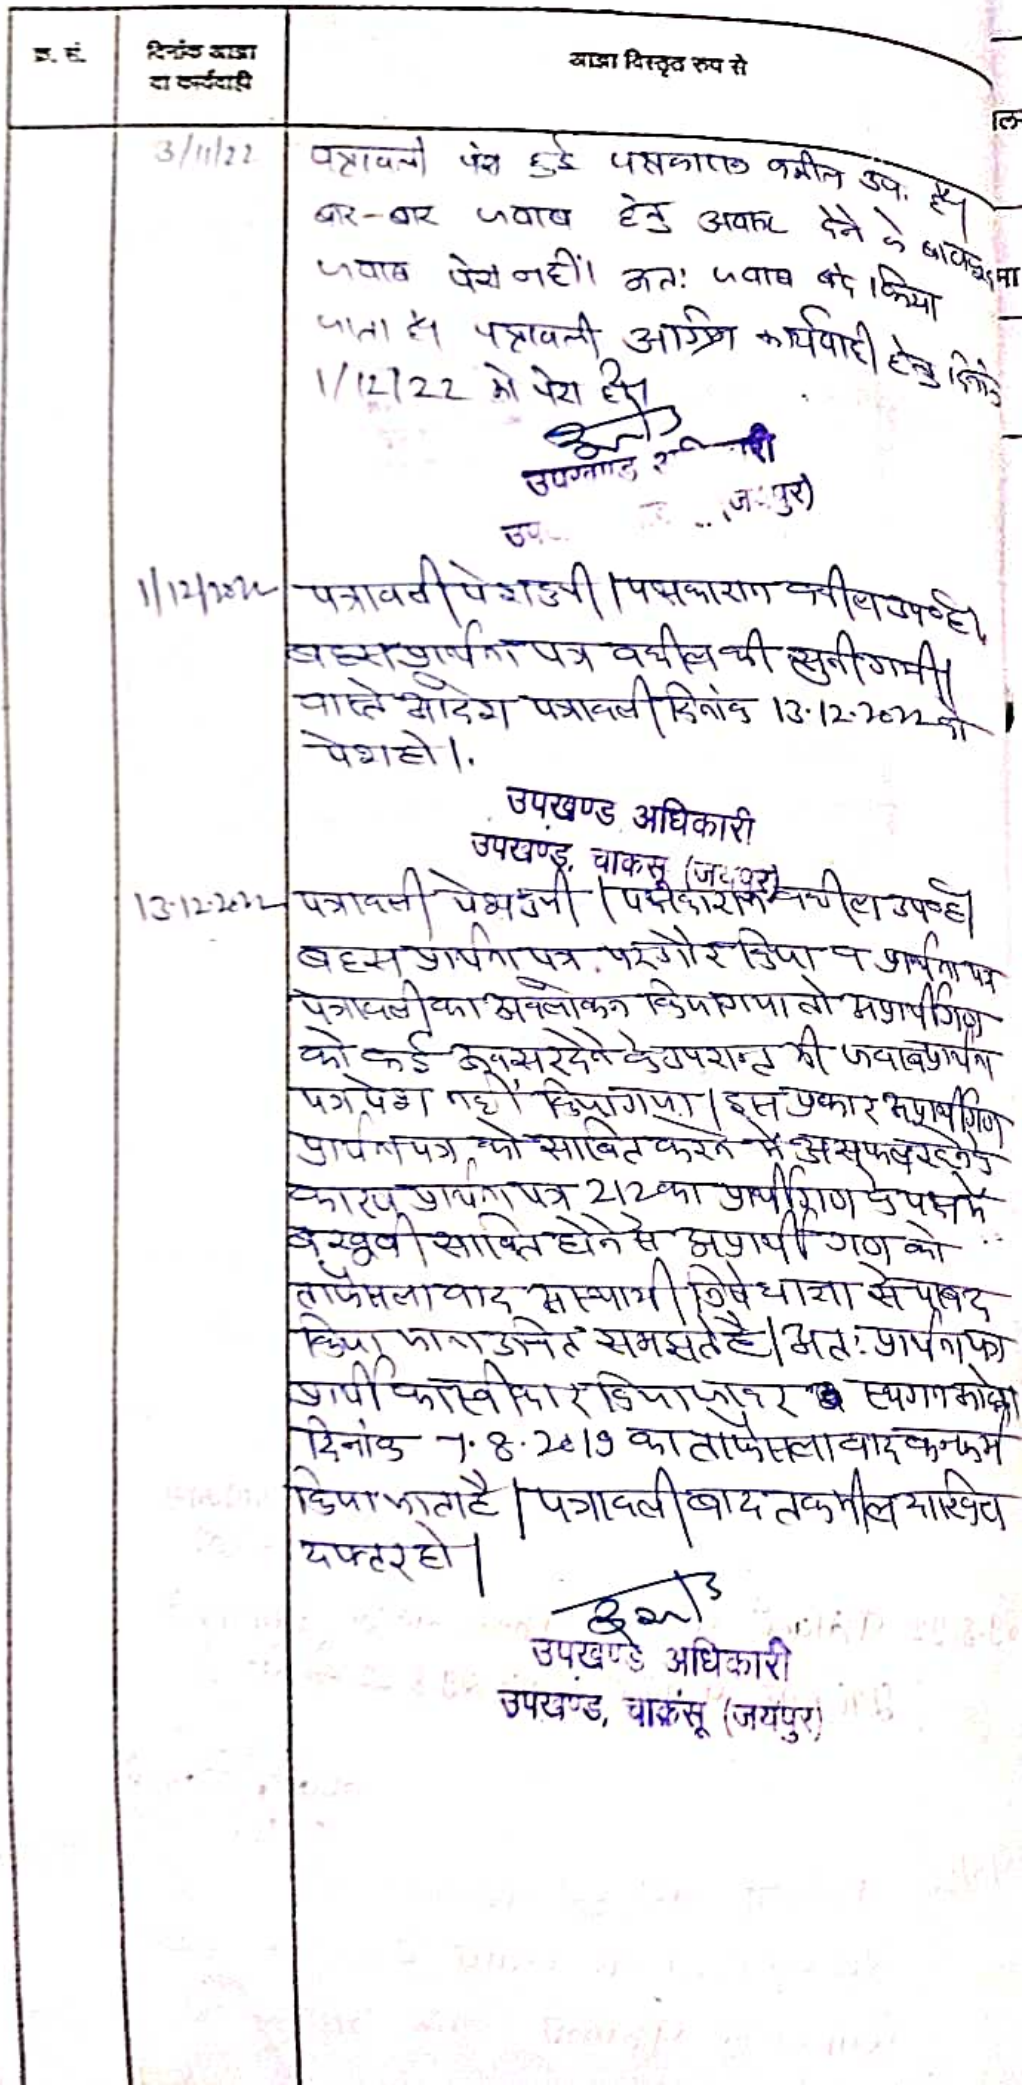 क्र. सं.
दिनांक आज्ञा
या कार्यवाही
आज्ञा विस्तृत रूप से
3/11/22
पत्रावली पेश हुई पक्षकारान वकील उप. है।
बार-बार जवाब हेतु अवसर देने के बावजूद
जवाब पेश नहीं। अतः जवाब बंद किया
जाता है। पत्रावली अग्रिम कार्यवाही हेतु दिनांक
1/12/22 को पेश हो।
उपखण्ड
(जयपुर)
1/12/2022
पत्रावली पेश हुयी। पक्षकारान वकील उप० है।
बहस प्रार्थना पत्र वकील की सुनी गयी।
वास्ते आदेश पत्रावली दिनांक 13.12.2022 को
पेश हो।
उपखण्ड अधिकारी
उपखण्ड, चाकसू (जयपुर)
13.12.2022
पत्रावली पेश हुयी। वकील उप० है।
बहस प्रार्थना पत्र पर गौर किया व प्रार्थना पत्र
पत्रावली का अवलोकन किया गया तो अप्रार्थीगण
को कई अवसर देने के उपरान्त भी जवाब प्रार्थना
पत्र पेश नहीं किया गया। इस प्रकार अप्रार्थीगण
प्रार्थना पत्र को साबित करने में असफल रहने के
कारण प्रार्थना पत्र 212 का प्रार्थीगण के पक्ष में
बखुबी साबित होने से अप्रार्थी गण को
ताफैसला वाद अस्थायी निषेधाज्ञा से पाबंद
किया जाना उचित समझते है। अतः प्रार्थना पत्र
प्रार्थी का स्वीकार किया जाकर स्थगन आदेश
दिनांक 7.8.2019 का ताफैसला वाद कन्फर्म
किया जाता है। पत्रावली बाद तकमील दाखिल
दफ्तर हो।
उपखण्ड अधिकारी
उपखण्ड, चाकसू (जयपुर)